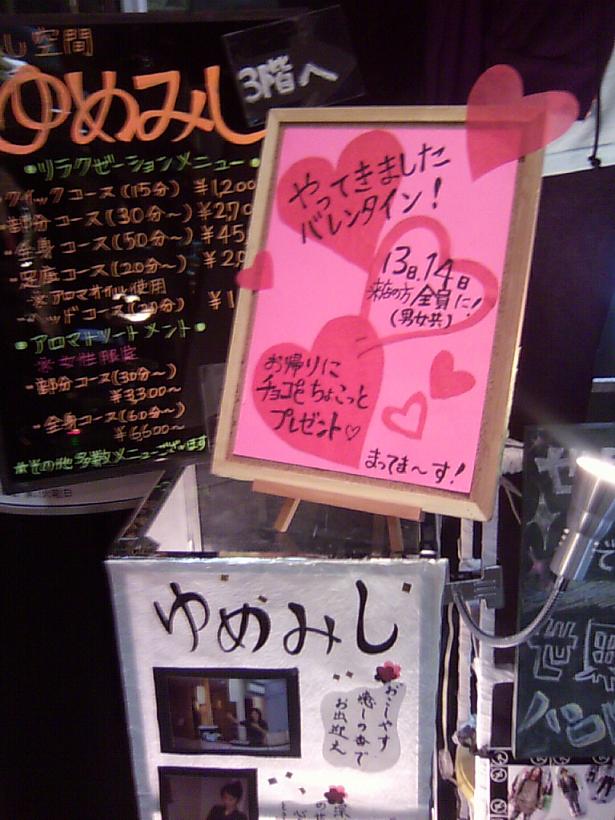 し空間
ゆめみし
3階へ
・リラクゼーションメニュー・
クイックコース(15分) ¥1,200
・部分コース(30分〜) ¥2,70
・全身コース(50分〜) ¥45
・足底コース(20分〜) ¥2,
※アロマオイル使用
・ヘッドコース(20分) ¥1
・アロマトリートメント・
※女性限定
・部分コース(30分〜)
¥3,300〜
・全身コース(60分〜)
¥6,600〜
★その他多数メニューございます
やってきました
バレンタイン!
13日.14日
来店の方全員に!
(男女共)
お帰りに
チョコをちょこっと
プレゼント♡
まってま〜す!
ゆめみし
おこしやす
癒しの香で
お出迎え
世界
ハンド